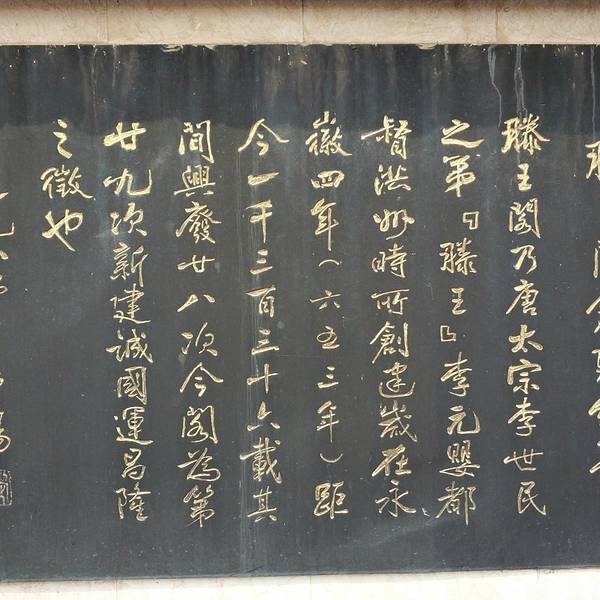 滕王閣乃唐太宗李世民
之弟『滕王』李元嬰都
督洪州時所創建歲在永
徽四年(六五三年)距
今一千三百三十六載其
間興廢廿八次今閣為第
廿九次新建誠國運昌隆
之徵也